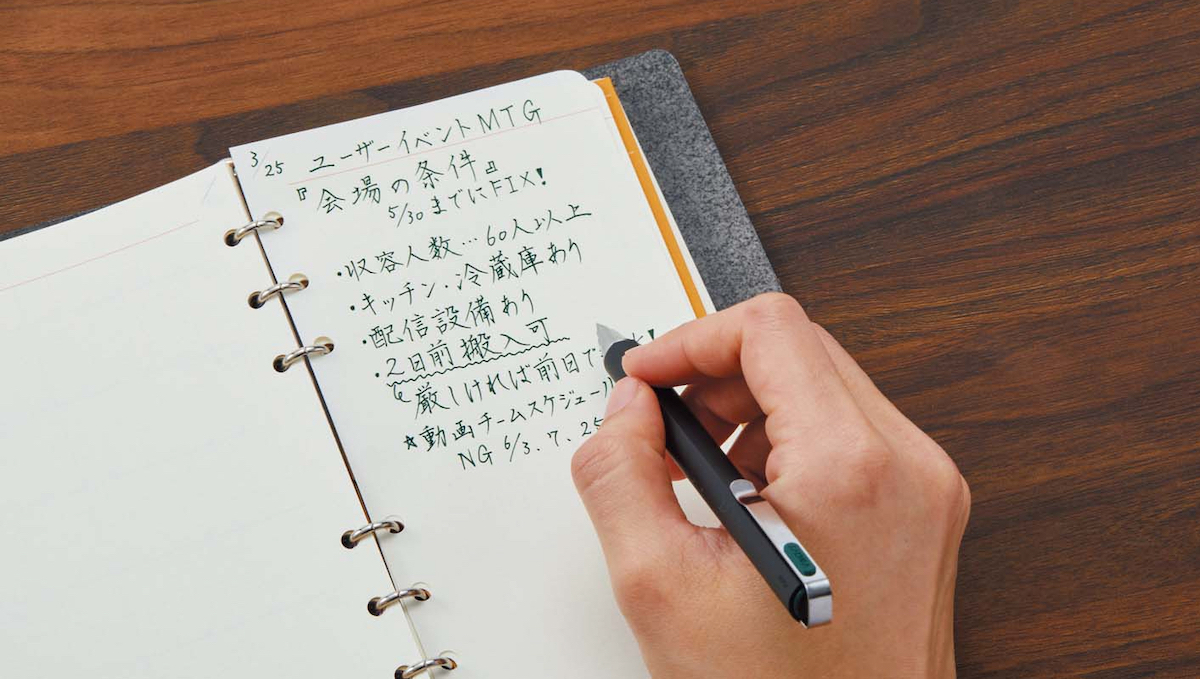 3/25 ユーザーイベントMTG
『会場の条件』
5/30までにFIX!
・収容人数…60人以上
・キッチン・冷蔵庫あり
・配信設備あり
・2日前搬入可
厳しければ前日で!
★動画チームスケジュール
NG 6/3.7.25